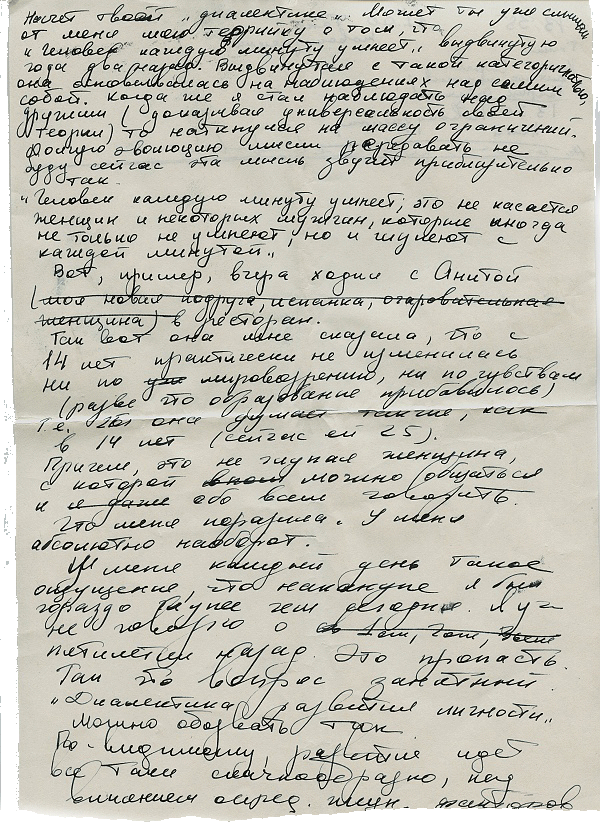 Насчёт твоей „диалектики". Может ты уже слышал
от меня мою теорийку о том, что
„человек каждую минуту умнеет", выдвинутую
года два назад. Выдвинутая с такой категоричностью,
она основывалась на наблюдениях над самим
собой. Когда же я стал наблюдать над
другими (доказывая универсальность своей
теории) то наткнулся на массу ограничений.
Полную эволюцию мысли передавать не
буду сейчас эта мысль звучит приблизительно
так.
„Человек каждую минуту умнеет, это не касается
женщин и некоторых мужчин, которые иногда
не только не умнеют, но и глупеют с
каждой минутой".
Вот, пример, вчера ходил с Анитой
(моя новая подруга, испанка, очаровательная
женщина) в ресторан.
Так вот она мне сказала, что с
14 лет практически не изменилась
ни по мировоззрению, ни по чувствам
(разве что образование прибавилось)
т.е. она думает также, как
в 14 лет (сейчас ей 25).
Причем, это не глупая женщина,
с которой можно общаться
и даже обо всем говорить.
Что меня поразило. У меня
абсолютно наоборот.
У меня каждый день такое
ощущение, что накануне я был
гораздо глупее чем сегодня. Я уж
не говорю о том, чем
пятилетки назад. Это пропасть.
Так что вопрос занятный.
„Диалектика развития личности"
можно обозвать так.
По-видимому, развитие идет
все таки скачкообразно, под
влиянием опред.